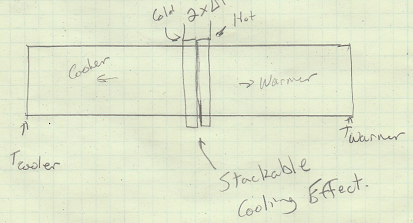 Cold 2xΔT Hot
Cooler
Warmer
Tcooler
Twarmer
Stackable
Cooling Effect.